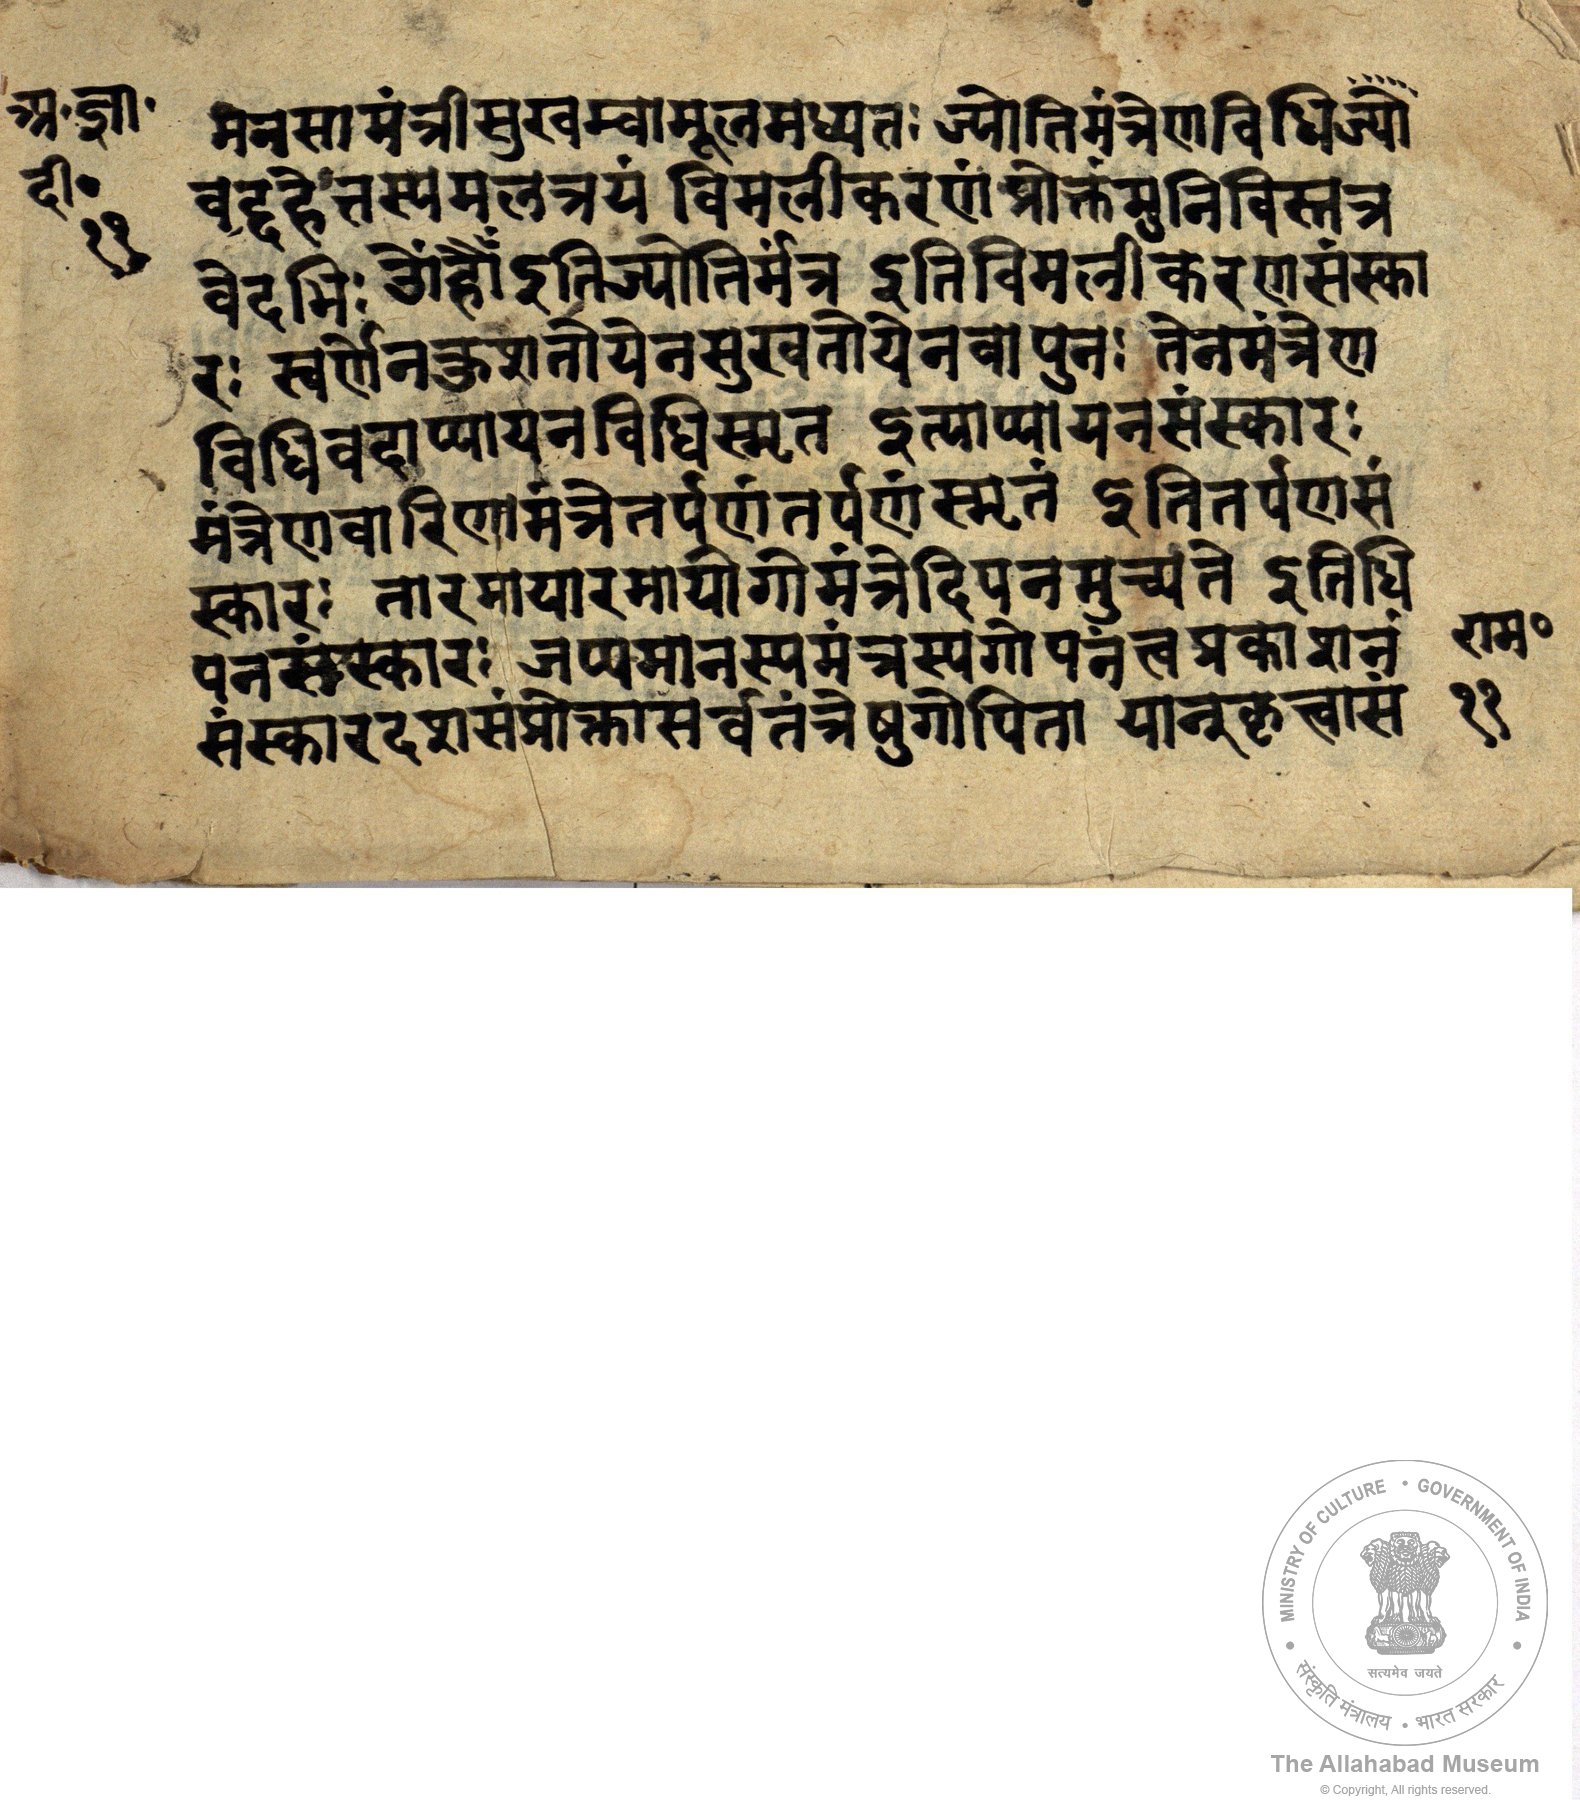 अ॰ज्ञा॰
दी॰
११
मनसामंत्रीसुखम्वामूलमध्यतः ज्योतिमंत्रेणविधिज्यौ
वद्दहेत्तस्यमलत्रयं विमलीकरणंप्रोक्तंमुनिविस्तत्र
वेदभिः ॐह्रौंइतिज्योतिर्मंत्र इतिविमलीकरणसंस्का
रः स्वर्णेनकुशतोयेनसुखतोयेनवापुनः तेनमंत्रेण
विधिवदाप्यायनविधिस्मृत इत्याप्यायनसंस्कारः
मंत्रेणवारिणामंत्रेतर्पणंतर्पणंस्मृतं इतितर्पणसं
स्कारः तारमायारमायोगोमंत्रेदिपनमुच्यते इतिधि
पनसंस्कारः जप्यमानस्यमंत्रस्यगोपनंत्वप्रकाशनं
संस्कारदशसंप्रोक्तासर्वतंत्रेषुगोपिता यान्कृत्वासं
राम॰
११
MINISTRY OF CULTURE • GOVERNMENT OF INDIA
सत्यमेव जयते
संस्कृति मंत्रालय • भारत सरकार
The Allahabad Museum
© Copyright, All rights reserved.